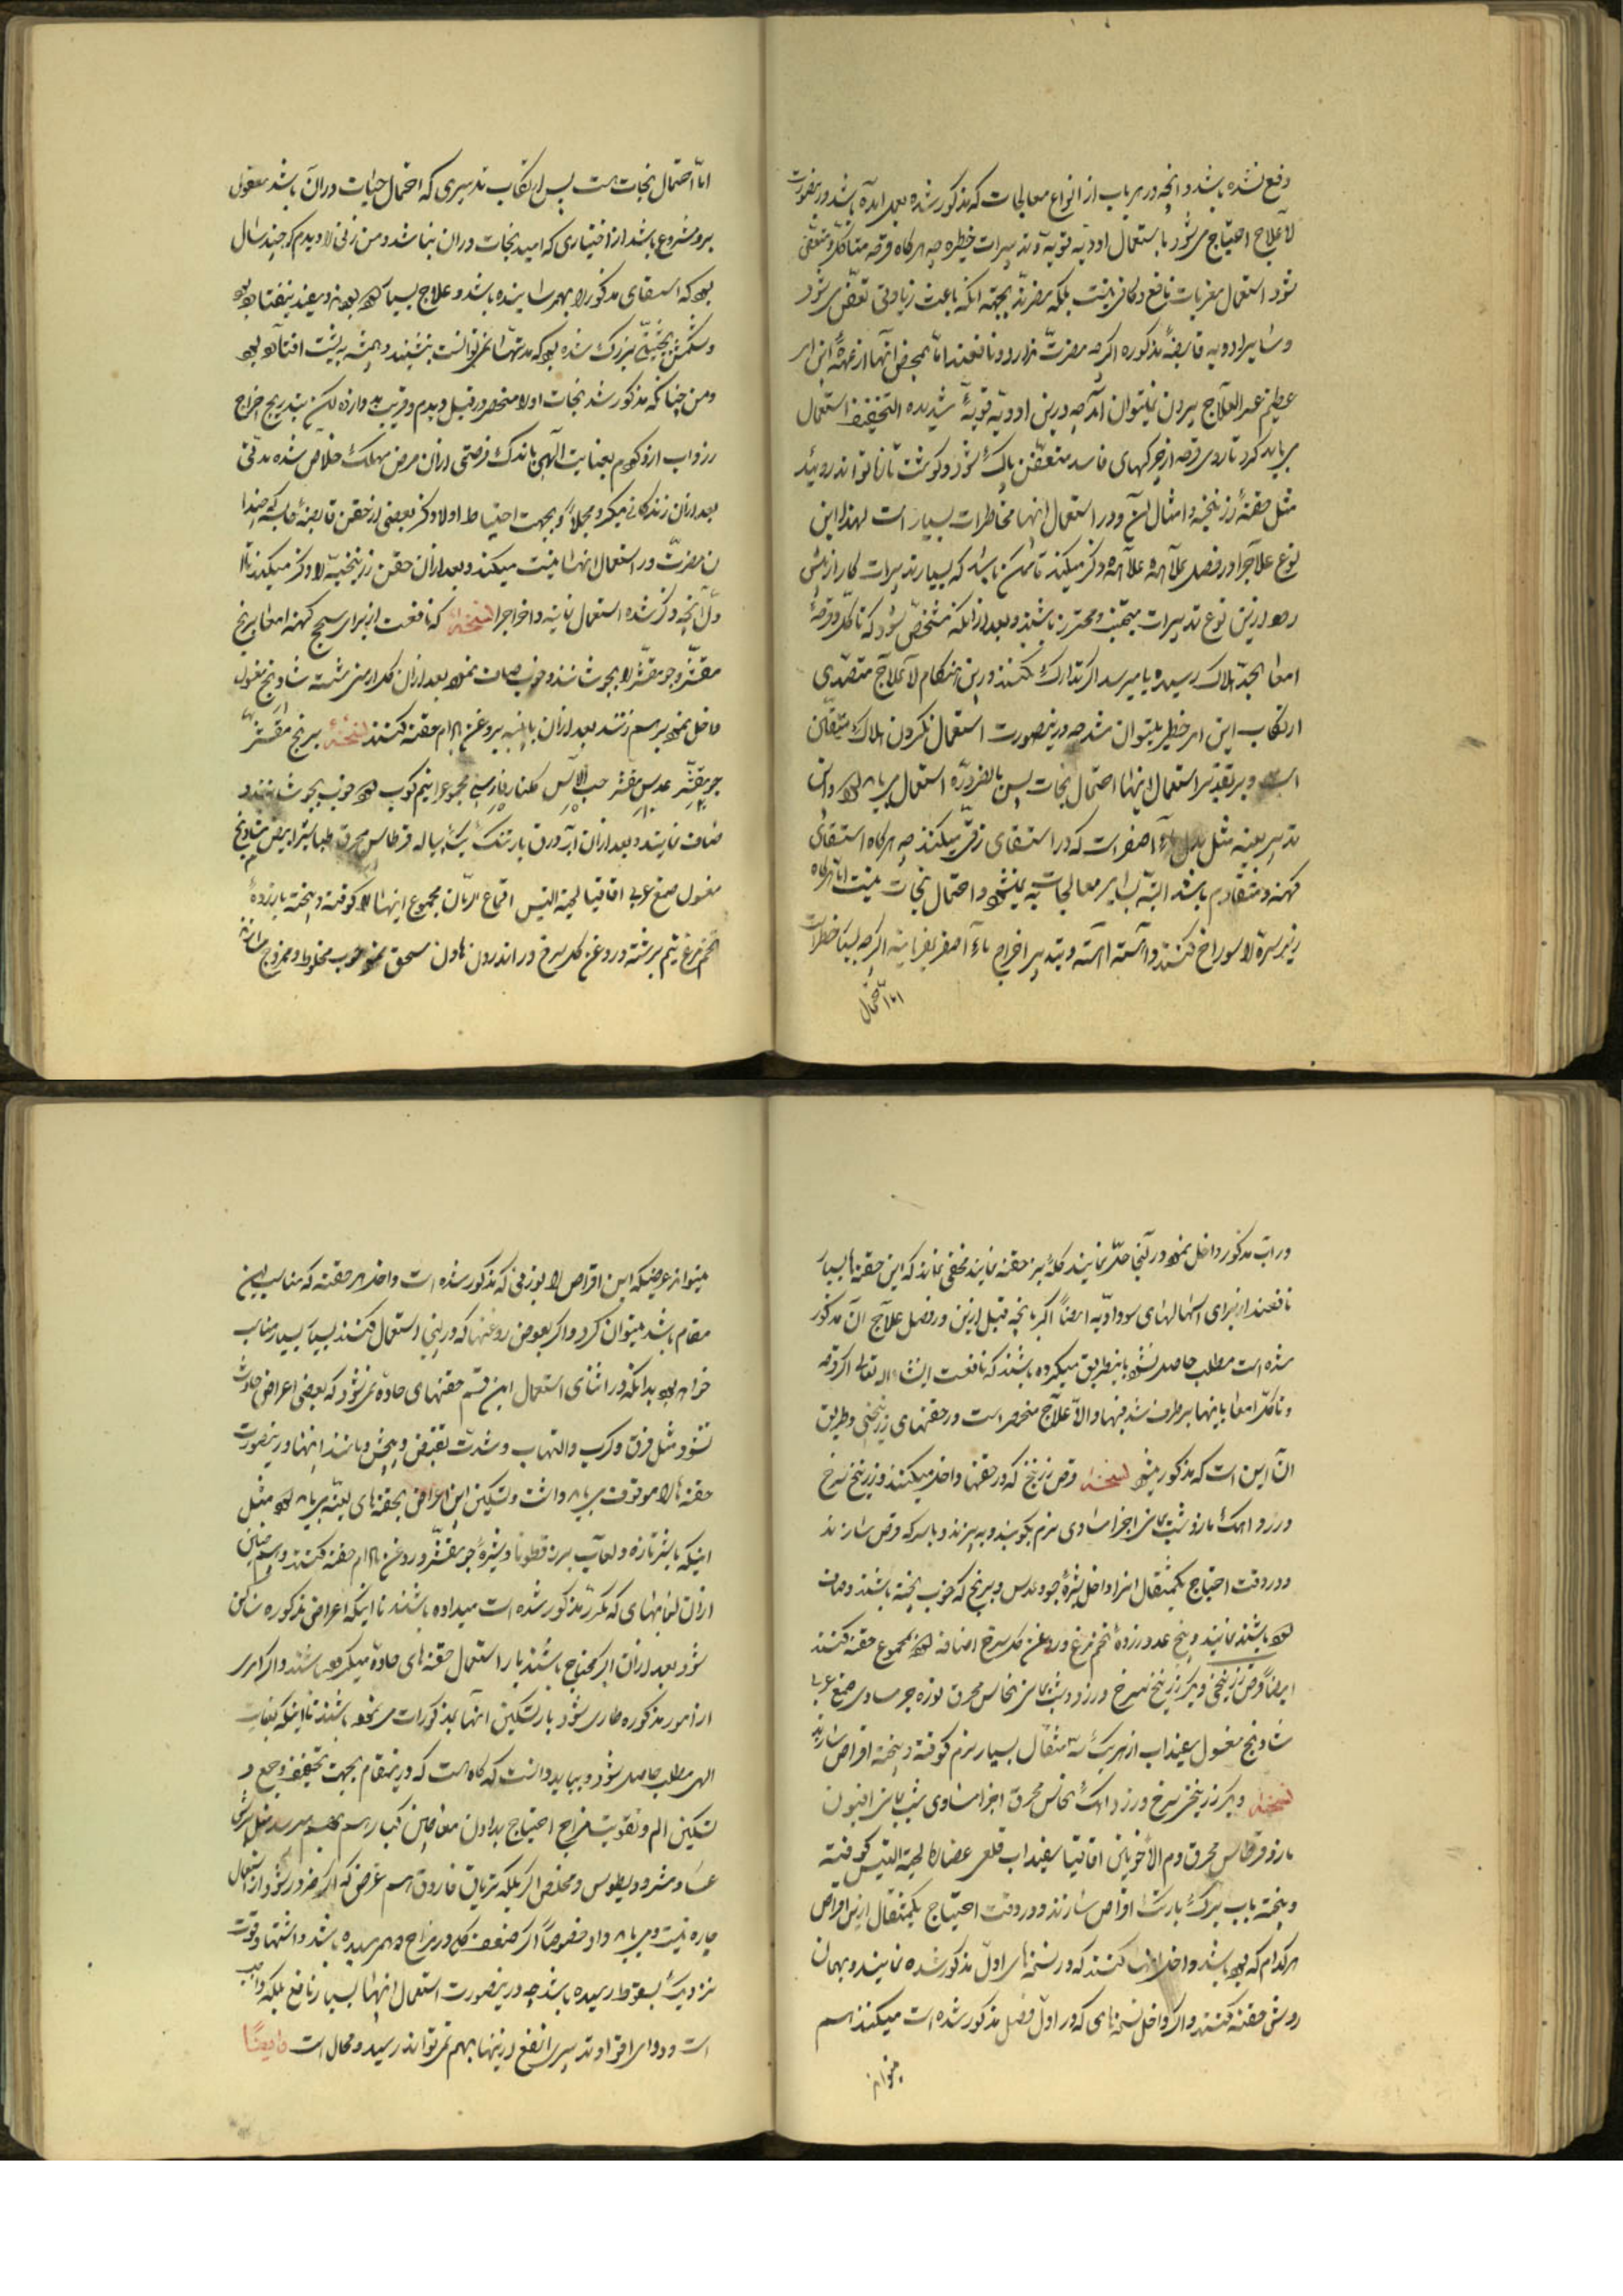 دفع نشده باشد و انچه در هر باب از انواع معالجات که مذکور شده بعمل امده باشد در ینصورت
لاعلاج احتیاج میشود باستعمال ادویه قویه و تدبیرات خطره چه هرکاه قرحه متاکل و متعفن
شود استعمال مغریات نافع و کافی نیست بلکه مضر بجهة انکه باعث زیادتی تعفن میشود
و سایر ادویه قابضهٔ مذکوره اکرچه مضرت ندارد و نافعند اما بمحض اینها از عهدهٔ این امر
عظیم عسر العلاج بیرون نمیتوان آمد چه درین ادویهٔ قویهٔ شدیده التجفیف استعمال
می باید کرد تا روی قرحه از چرکهای فاسد متعفن پاک شود و کوشت تازه تواند روئید
مثل حقنهٔ زرنیخیه و امثال آن و در استعمال اینها مخاطرات بسیار است لهذا این
نوع علاج را در فصل علاحده علاحده ذکر میکند تا ممکن باشد که بسیار تدبیرات کار از پیش
رود ازین نوع تدبیرات مجتنب و محترز باشند و بعد از انکه مشخص شود که تاکل و قرحهٔ
امعا بحد هلاک رسیده یا میرسد اکر تدارک نکنند درین هنکام لاعلاج متصدی
ارتکاب این امر خطیر میتوان شد چه درینصورت استعمال نکردن هلاک متیقن
است و بر تقدیر استعمال اینها احتمال نجات پس بالضروره استعمال می باید کرد و این
تدبیر بعینه مثل بزل ماء اصفر است که در استسقای زقی میکنند چه هرکاه استسقای
کهنه و متقادم باشد البته بسایر معالجات به نمیشود و احتمال نجات نیست اما هرکاه
زیر سره را سوراخ کنند و آهسته آهسته و بتدبیر اخراج ماء اصفر بفرمایند اکرچه بسیار خطر است
اما احتمال
اما احتمال نجات هست پس ارتکاب تدبیری که احتمال حیات در ان باشد معقول
بر و مشروع باشد از اختیاری که امید نجات در ان نباشد و من زنی را دیدم که چند سال
بود که استسقای مذکور را بهمرسانیده باشد و علاج بسیار کرده بود و مفید نیفتاده بود
و شکمش بحیثیتی بزرک شده بود که مدتها نمی توانست بنشیند و همیشه به پشت افتاده بود
و من چنانکه مذکور شد نجات او را منحصر در بزل دیدم و قریب به دوازده لکن بتدریج اخراج
زرداب ازو کردم بعنایت الهی باندک فرصتی از ان مرض مهلک خلاص شده مدتی
بعد از ان زندکانی میکرد مجملا و بجهت احتیاط اولا ذکر بعضی از حقن قابضهٔ حابسه که چندا
ن مضرت در استعمال اینها نیست میکند و بعد از ان حقن زرنیخیه را ذکر میکند تا ا
ول انچه ذکر شده استعمال نمایند و اخراجرا نسخهٔ که نافعست از برای سحج کهنه امعا برنج
مقشر و جو مقشر را بجوشانند و خوب صاف نموده بعد از ان کل ارمنی شسته شادنج مغسول
داخل نموده برهم زنند بعد از ان با پیه بز و روغن بادام حقنه کنند نسخهٔ برنج مقشر
جو مقشر عدس مقشر حب الآس کلنار فارسی مجموعرا نیم کوب کرده خوب بجوشانند و
صاف نمایند و بعد از ان آب ورق بارتنک یک پیاله قرطاس محرق طباشیر ابیض شادنج
مغسول صمغ عربی اقاقیا لحیة التیس اقماع الرمان مجموع اینها را کوفته و بیخته با زردهٔ
تخم مرغ نیم برشته و روغن کل سرخ در اندرون هاون سحق نموده خوب مخلوط و ممزوج سازند
در اب مذکور داخل نموده در آن حل نمایند ملکه بز حقنه نمایند مخفی نماند که این حقنها بسیار
نافعند از برای اسهالهای سوداویه ایضا اکر بانچه قبل ازین در فصل علاج آن مذکور
شده است مطلب حاصل نشود باینطریق میکرده باشند که نافعست انشاء اله تعالی اکر قرحه
و تاکل امعا باینها برطرف شد فبها و الا علاج منحصر است در حقنهای زرنیخی و طریق
ان این است که مذکور میشود نسخه قرص زرنیخ که در حقنها داخل میکنند زرنیخ سرخ
و زرد اهک مازو شب یمانی اجزا مساوی نرم بکوبند و به بیزند و با سرکه قرص سازند
و در وقت احتیاج یکمثقال انرا داخل شیرهٔ جو و عدس و برنج که خوب پخته باشند و صاف
کرده باشند نمایند و پنج عدد زردهٔ تخم مرغ و روغن کل سرخ اضافه کرده بمجموع حقنه کنند
ایضا قرص زرنیخی دیکر زرنیخ سرخ و زرد و شب یمانی نحاس محرق نوره جزو مساوی صمغ عربی
شادنج مغسول سفیداب از هریک سه مثقال بسیار نرم کوفته و بیخته اقراص سازند
نسخه دیکر زرنیخ سرخ و زرد اهک نحاس محرق اجزا مساوی شب یمانی افیون
مازو قرطاس محرق دم الاخوین اقاقیا سفیداب قلعی عصاره لحیة التیس کوفته
و بیخته باب برک بارتنک اقراص سازند و در وقت احتیاج یکمثقال ازین اقراص
هرکدام که بوده باشد داخل کنند که در نسخهای اول مذکور شده نمایند و بهمان
روش حقنه کنند و اکر داخل نسخهای که در اول فصل مذکور شده است میکنند هم
میتواند
میتواند غرضکه این اقراص را بوزنی که مذکور شده است داخل هر حقنه که مناسب این
مقام باشد میتوان کرد و اکر بعوض روغنها که دنبه استعمال کنند بسیار بسیار مناسب
خواهد بود بدانکه در اثنای استعمال این قسم حقنهای حاده می شود که بعضی اعراض حادث
شود مثل فرق و کرب و التهاب و شدت تقبض و پیچش و مانند اینها درینصورت
حقنه را موقوف می باید داشت و تسکین این اعراض بحقنهای لینه می باید کرد مثل
اینکه با شیر تازه و لعاب بزر قطونا و شیرهٔ جو مقشر و روغن بادام حقنه کنند و هم چنین
از ان لعابهای که مکرر مذکور شده است میداده باشند تا اینکه اعراض مذکوره ساکن
شود بعد از ان اکر محتاج باشند باز استعمال حقنه های حاده میکرده باشند و اکر امری
از امور مذکوره طاری شود باز تسکین انها بمذکورات می نموده باشند تا اینکه بعنایت
الهی مطلب حاصل شود و بباید دانست که کاه هست که درینمقام بجهت تخفیف وجع و
تسکین الم و تقویت مزاج احتیاج بدادن معاجین کبار هم بهم میرسد مثل برشعثا
و مثرودیطوس و مخلص اکبر بلکه تریاق فاروق هم غرض که اکر ضرور شود از استعمال
چاره نیست و می باید داد خصوصا اکر ضعف کلی در مزاج هم رسیده باشد و اشتها و قوت
نزدیک بسقوط رسیده باشد چه درینصورت استعمال اینها بسیار نافع بلکه واجب
است و دوای اقوا و تدبیری انفع ازینها بهم نمی تواند رسید و محال است و ایضا